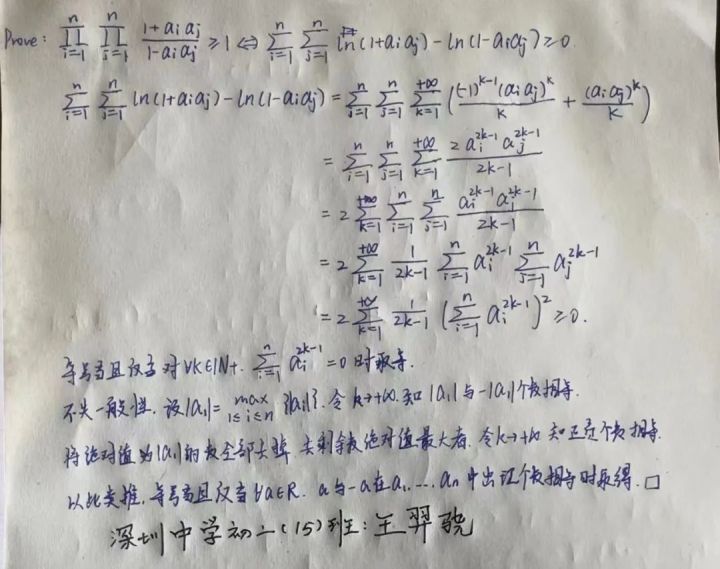 Prove: \prod_{i=1}^{n} \prod_{j=1}^{n} \frac{1+a_i a_j}{1-a_i a_j} ≥ 1 ⇔ \sum_{i=1}^{n} \sum_{j=1}^{n} ln(1+a_i a_j) - ln(1-a_i a_j) ≥ 0
\sum_{i=1}^{n} \sum_{j=1}^{n} ln(1+a_i a_j) - ln(1-a_i a_j) = \sum_{i=1}^{n} \sum_{j=1}^{n} \sum_{k=1}^{+∞} (\frac{(-1)^{k-1}(a_i a_j)^k}{k} + \frac{(a_i a_j)^k}{k})
= \sum_{i=1}^{n} \sum_{j=1}^{n} \sum_{k=1}^{+∞} \frac{2 a_i^{2k-1} a_j^{2k-1}}{2k-1}
= 2 \sum_{k=1}^{+∞} \sum_{i=1}^{n} \sum_{j=1}^{n} \frac{a_i^{2k-1} a_j^{2k-1}}{2k-1}
= 2 \sum_{k=1}^{+∞} \frac{1}{2k-1} \sum_{i=1}^{n} a_i^{2k-1} \sum_{j=1}^{n} a_j^{2k-1}
= 2 \sum_{k=1}^{+∞} \frac{1}{2k-1} (\sum_{i=1}^{n} a_i^{2k-1})^2 ≥ 0.
等号当且仅当对∀k∈N+. \sum_{i=1}^{n} a_i^{2k-1} = 0 时取等.
不失一般性, 设|a_1| = \max_{1≤i≤n} {|a_i|}. 令 k→+∞. 知 |a_1| 与 -|a_1| 个数相等.
将绝对值为|a_1|的数全部去掉, 去剩余数绝对值最大者. 令k→+∞ 知正负个数相等.
以此类推, 等号当且仅当 ∀a∈R. a与-a在a_1, ..., a_n 中出现个数相等时取得. □
深圳中学初二(15)班: 王羿骁